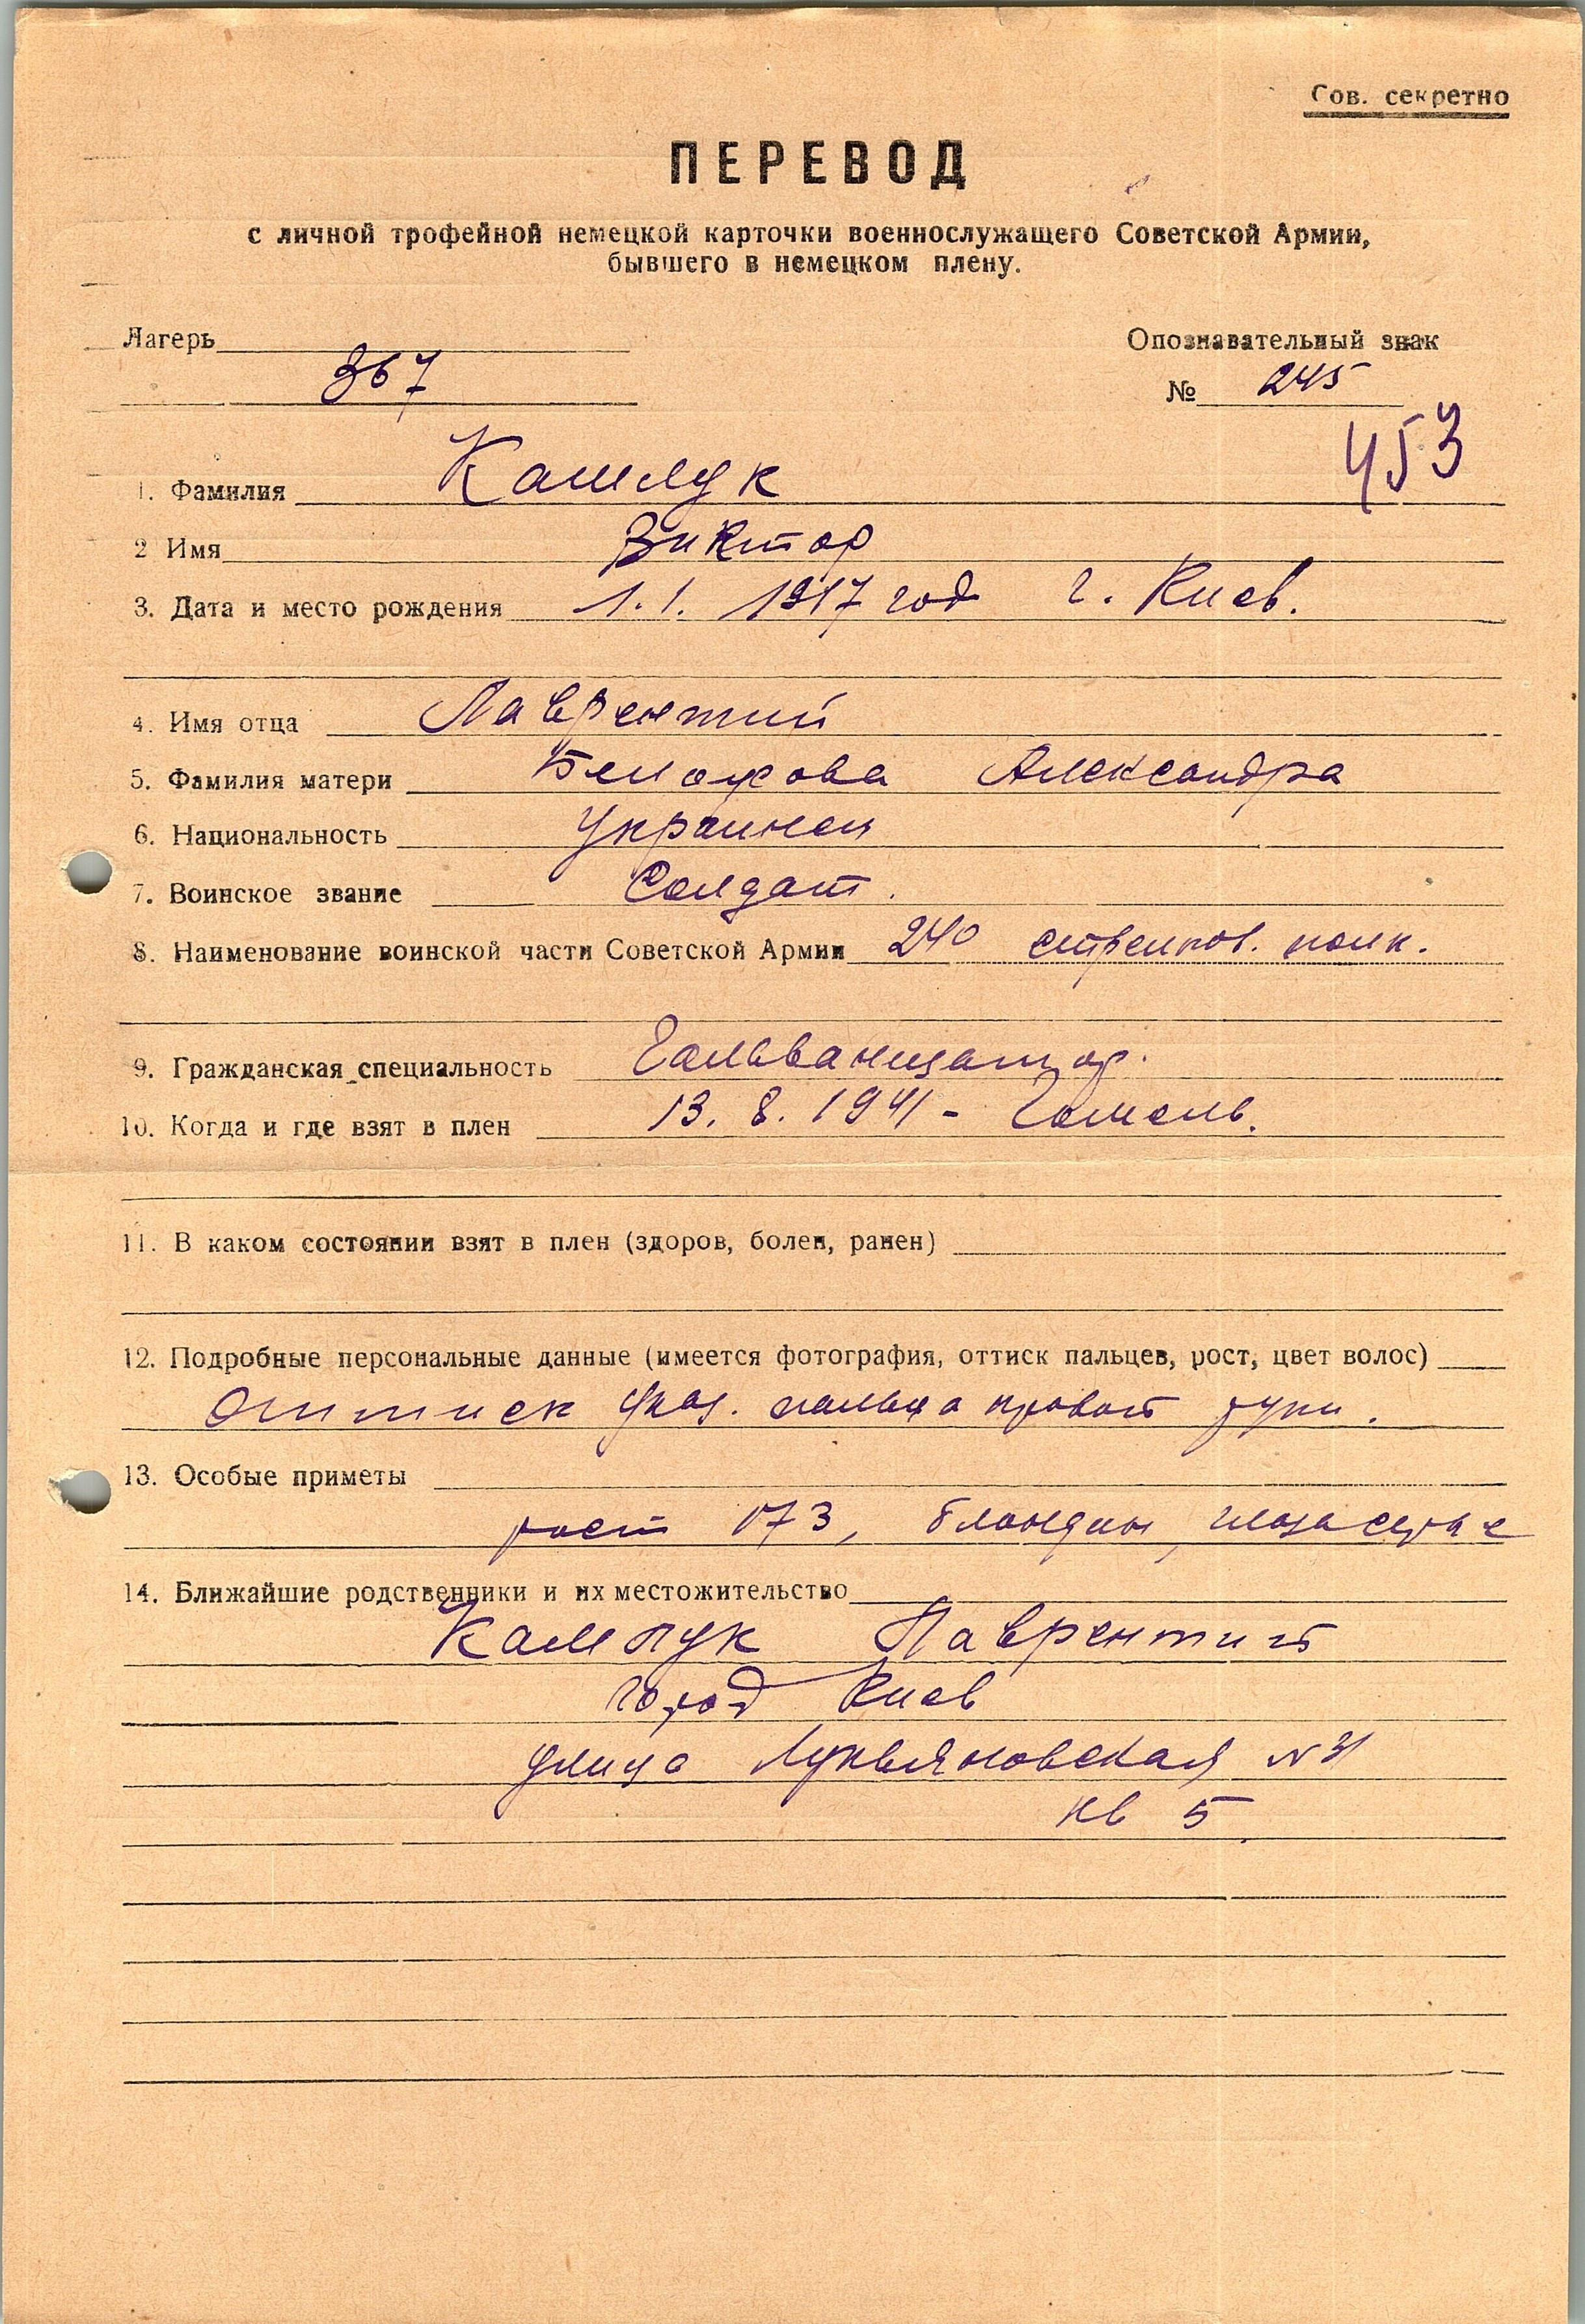 Сов. секретно
ПЕРЕВОД
с личной трофейной немецкой карточки военнослужащего Советской Армии,
бывшего в немецком плену.
Лагерь
Опознавательный знак
367
№ 245
453
1. Фамилия
2 Имя Виктор
3. Дата и место рождения 1.1. 1917 год г. Киев.
4. Имя отца Лаврентий
5. Фамилия матери Александра
6. Национальность Украинец
7. Воинское звание Солдат.
8. Наименование воинской части Советской Армии 240 стрелков. полк.
9. Гражданская специальность Гальванизатор.
10. Когда и где взят в плен 13. 8. 1941 - Гомель.
11. В каком состоянии взят в плен (здоров, болен, ранен)
12. Подробные персональные данные (имеется фотография, оттиск пальцев, рост, цвет волос)
Оттиск указ. пальца правой руки.
13. Особые приметы
рост 173, блондин, глаза серые
14. Ближайшие родственники и их местожительство
Лаврентий
город Киев
улица Лукьяновская № 31
кв 5